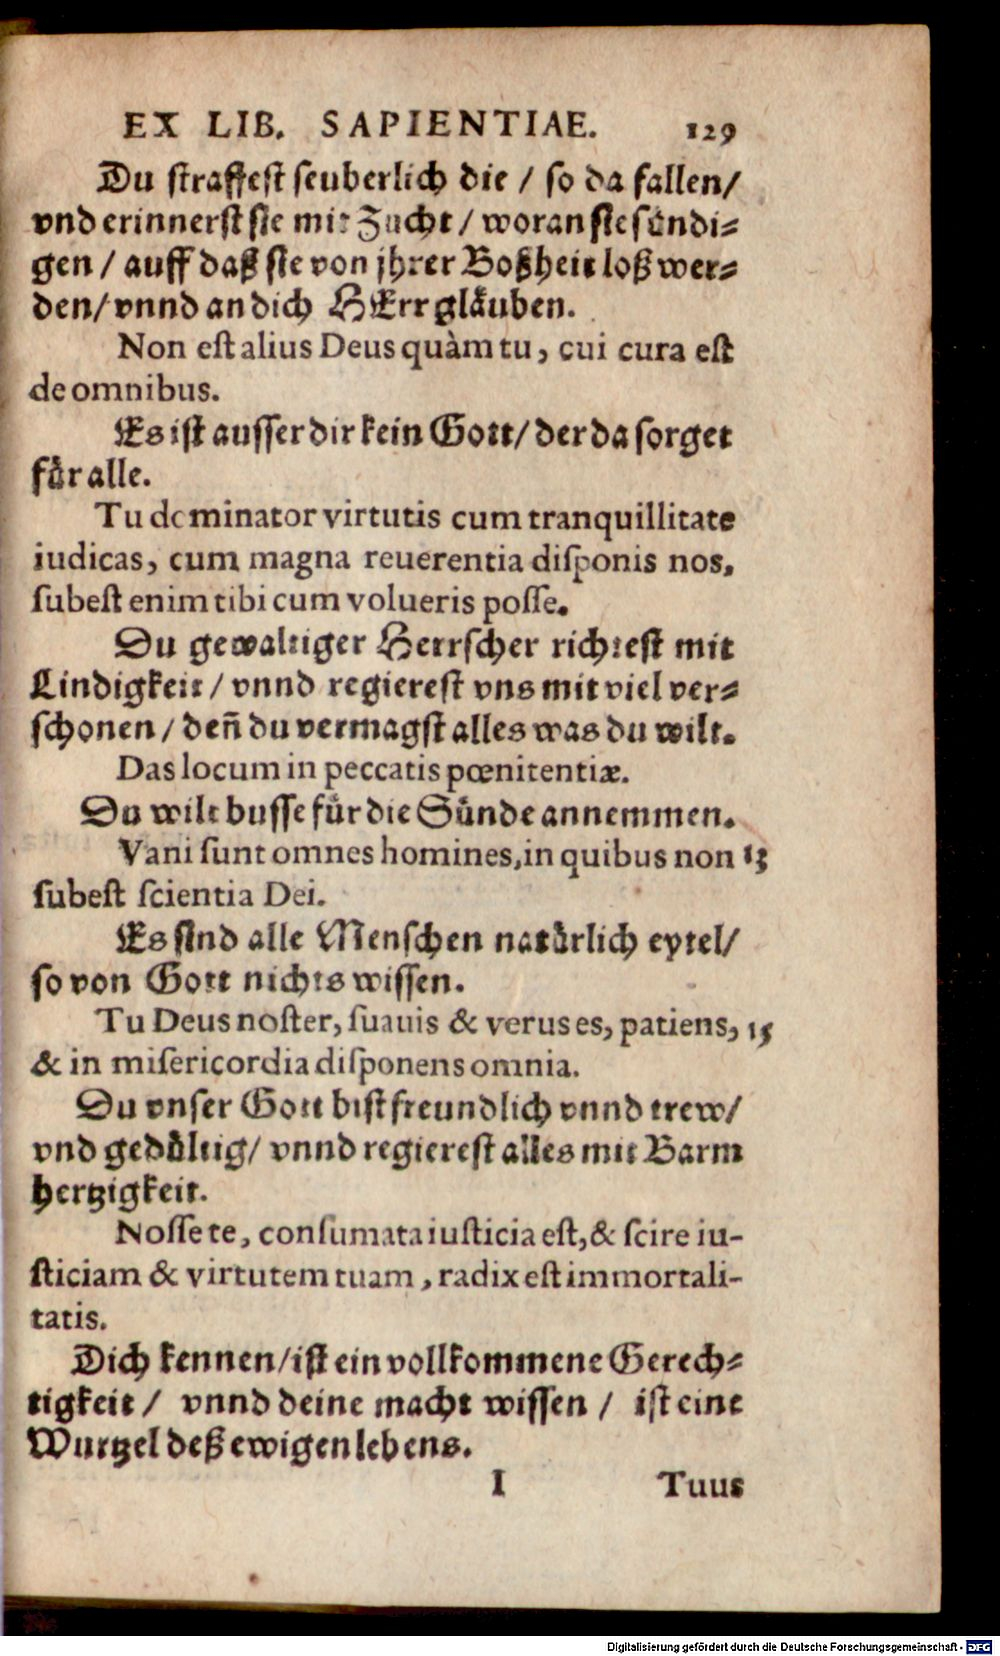 EX LIB. SAPIENTIAE. 129
Du straffest seuberlich die / so da fallen/
vnd erinnerst sie mit Zucht / woran sie sündi-
gen / auff daß sie von jhrer Boßheit loß wer-
den/ vnnd an dich HErr gläuben.
Non est alius Deus quàm tu, cui cura est
de omnibus.
Es ist ausser dir kein Gott/ der da sorget
für alle.
Tu dominator virtutis cum tranquillitate
iudicas, cum magna reuerentia disponis nos,
subest enim tibi cum volueris posse.
Du gewaltiger Herrscher richtest mit
Lindigkeit / vnnd regierest vns mit viel ver-
schonen / deñ du vermagst alles was du wilt.
Das locum in peccatis pœnitentiæ.
Du wilt busse für die Sünde annemmen.
Vani sunt omnes homines, in quibus non 13
subest scientia Dei.
Es sind alle Menschen natürlich eytel/
so von Gott nichts wissen.
Tu Deus noster, suauis & verus es, patiens, 15
& in misericordia disponens omnia.
Du vnser Gott bist freundlich vnnd trew/
vnd gedültig/ vnnd regierest alles mit Barm
hertzigkeit.
Nosse te, consumata iusticia est, & scire iu-
sticiam & virtutem tuam, radix est immortali-
tatis.
Dich kennen/ ist ein vollkommene Gerech-
tigkeit / vnnd deine macht wissen / ist eine
Wurtzel deß ewigen lebens.
I Tuus
Digitalisierung gefördert durch die Deutsche Forschungsgemeinschaft - DFG